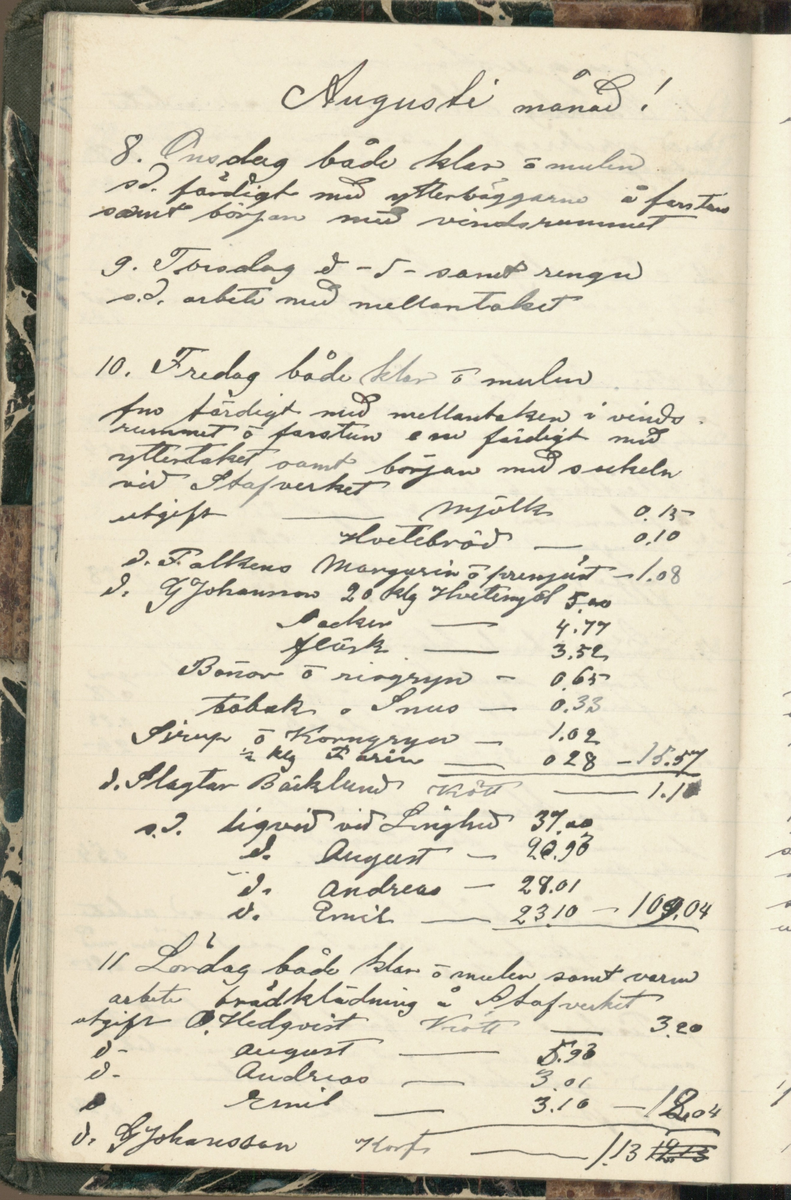 Augusti månad!
8. Onsdag både klar o mulen
s.d. färdigt med ytterväggarne å farstun
samt början med vindsrummet
9. Torsdag d -5- samt rengn
s.d. arbete med mellantaket
10. Fredag både klar o mulen
färdigt med mellantaken i vinds
rummet o farstun färdigt med
yttertaket samt början med sockeln
vid Stafverket
utgift — Mjölk 0.15
Hvetebröd — 0.10
d. Falkens Margarin o prenjäst — 1.08
d. G Johansson 20 klg Hvetemjöl 5.00
Socker — 4.77
fläsk — 3.52
Bönor o risgryn — 0.65
tobak o Snus — 0.33
Sirup o Korngryn — 1.02
½ klg Farin — 0 28 — 15.57
d. Slagtar Bäcklund Kött — 1.10
s.d. liqvid vid Ljnghed 37.00
d. August — 20.93
d. Andreas — 28.01
d. Emil — 23.10 — 109.04
11 Lördag både klar o mulen samt varm
arbete brädklädning å Stafverket
utgift O. Hedqvist Kött — 3.20
d- August — 5.93
d- Andreas — 3.01
d Emil — 3.10 — 12.04
d. G Johansson Korf — 1.13 12.13